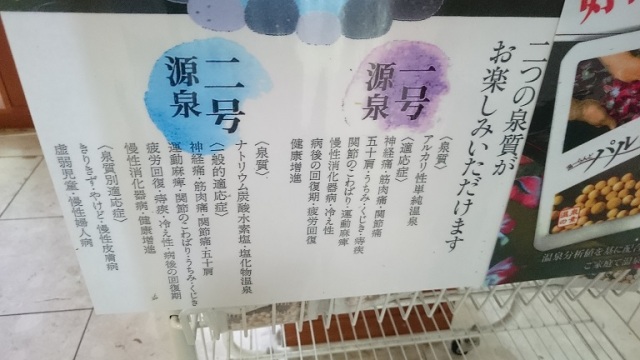 二つの泉質が
お楽しみいただけます
一号
源泉
〈泉質〉
アルカリ性単純温泉
〈適応症〉
神経痛・筋肉痛・関節痛
五十肩・うちみ・くじき・痔疾
関節のこわばり・運動麻痺
慢性消化器病・冷え性
病後の回復期・疲労回復
健康増進
二号
源泉
〈泉質〉
ナトリウム炭酸水素塩・塩化物温泉
〈一般的適応症〉
神経痛・筋肉痛・関節痛・五十肩
運動麻痺・関節のこわばり・うちみ・くじき
疲労回復・痔疾・冷え性・病後の回復期
慢性消化器病・健康増進
〈泉質別適応症〉
きりきず・やけど・慢性皮膚病
虚弱児童・慢性婦人病